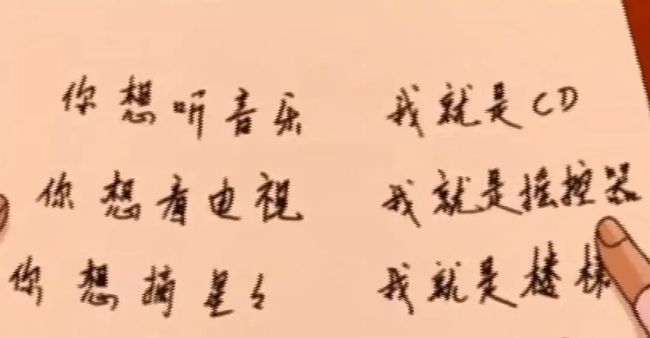 你想听音乐 我就是CD
你想看电视 我就是摇控器
你想摘星々 我就是楼梯